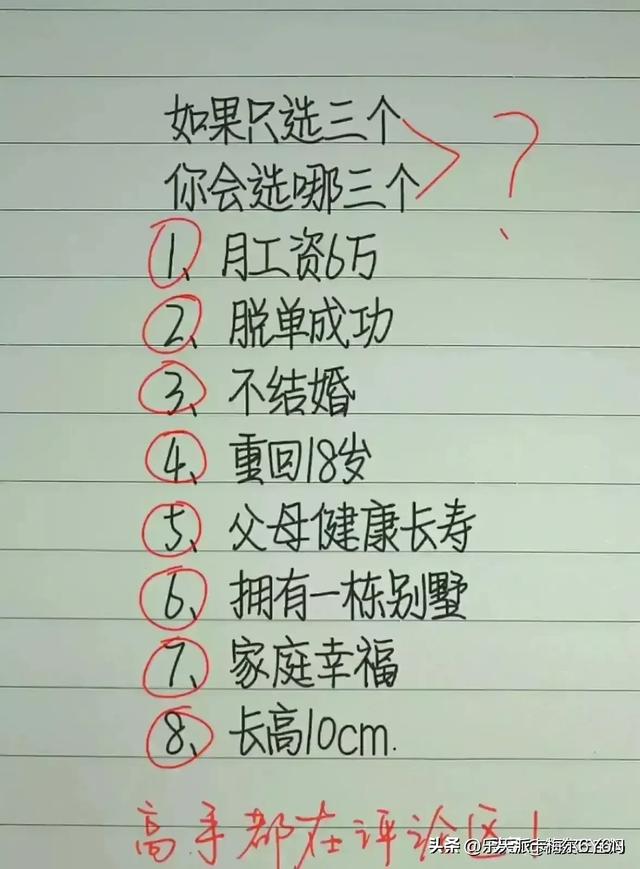 如果只选三个
你会选哪三个?
1、月工资6万
2、脱单成功
3、不结婚
4、重回18岁
5、父母健康长寿
6、拥有一栋别墅
7、家庭幸福
8、长高10cm.
高手都在评论区!
头条